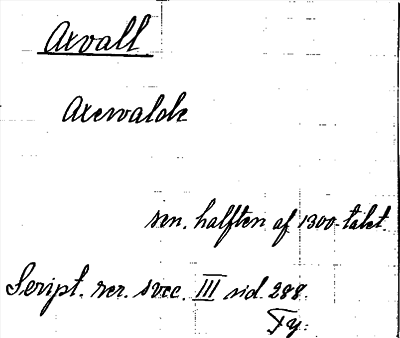 Axvall
Axewaldh
sen. hälften af 1300-talet.
Script. rer. svec. III sid. 288.
Fy.